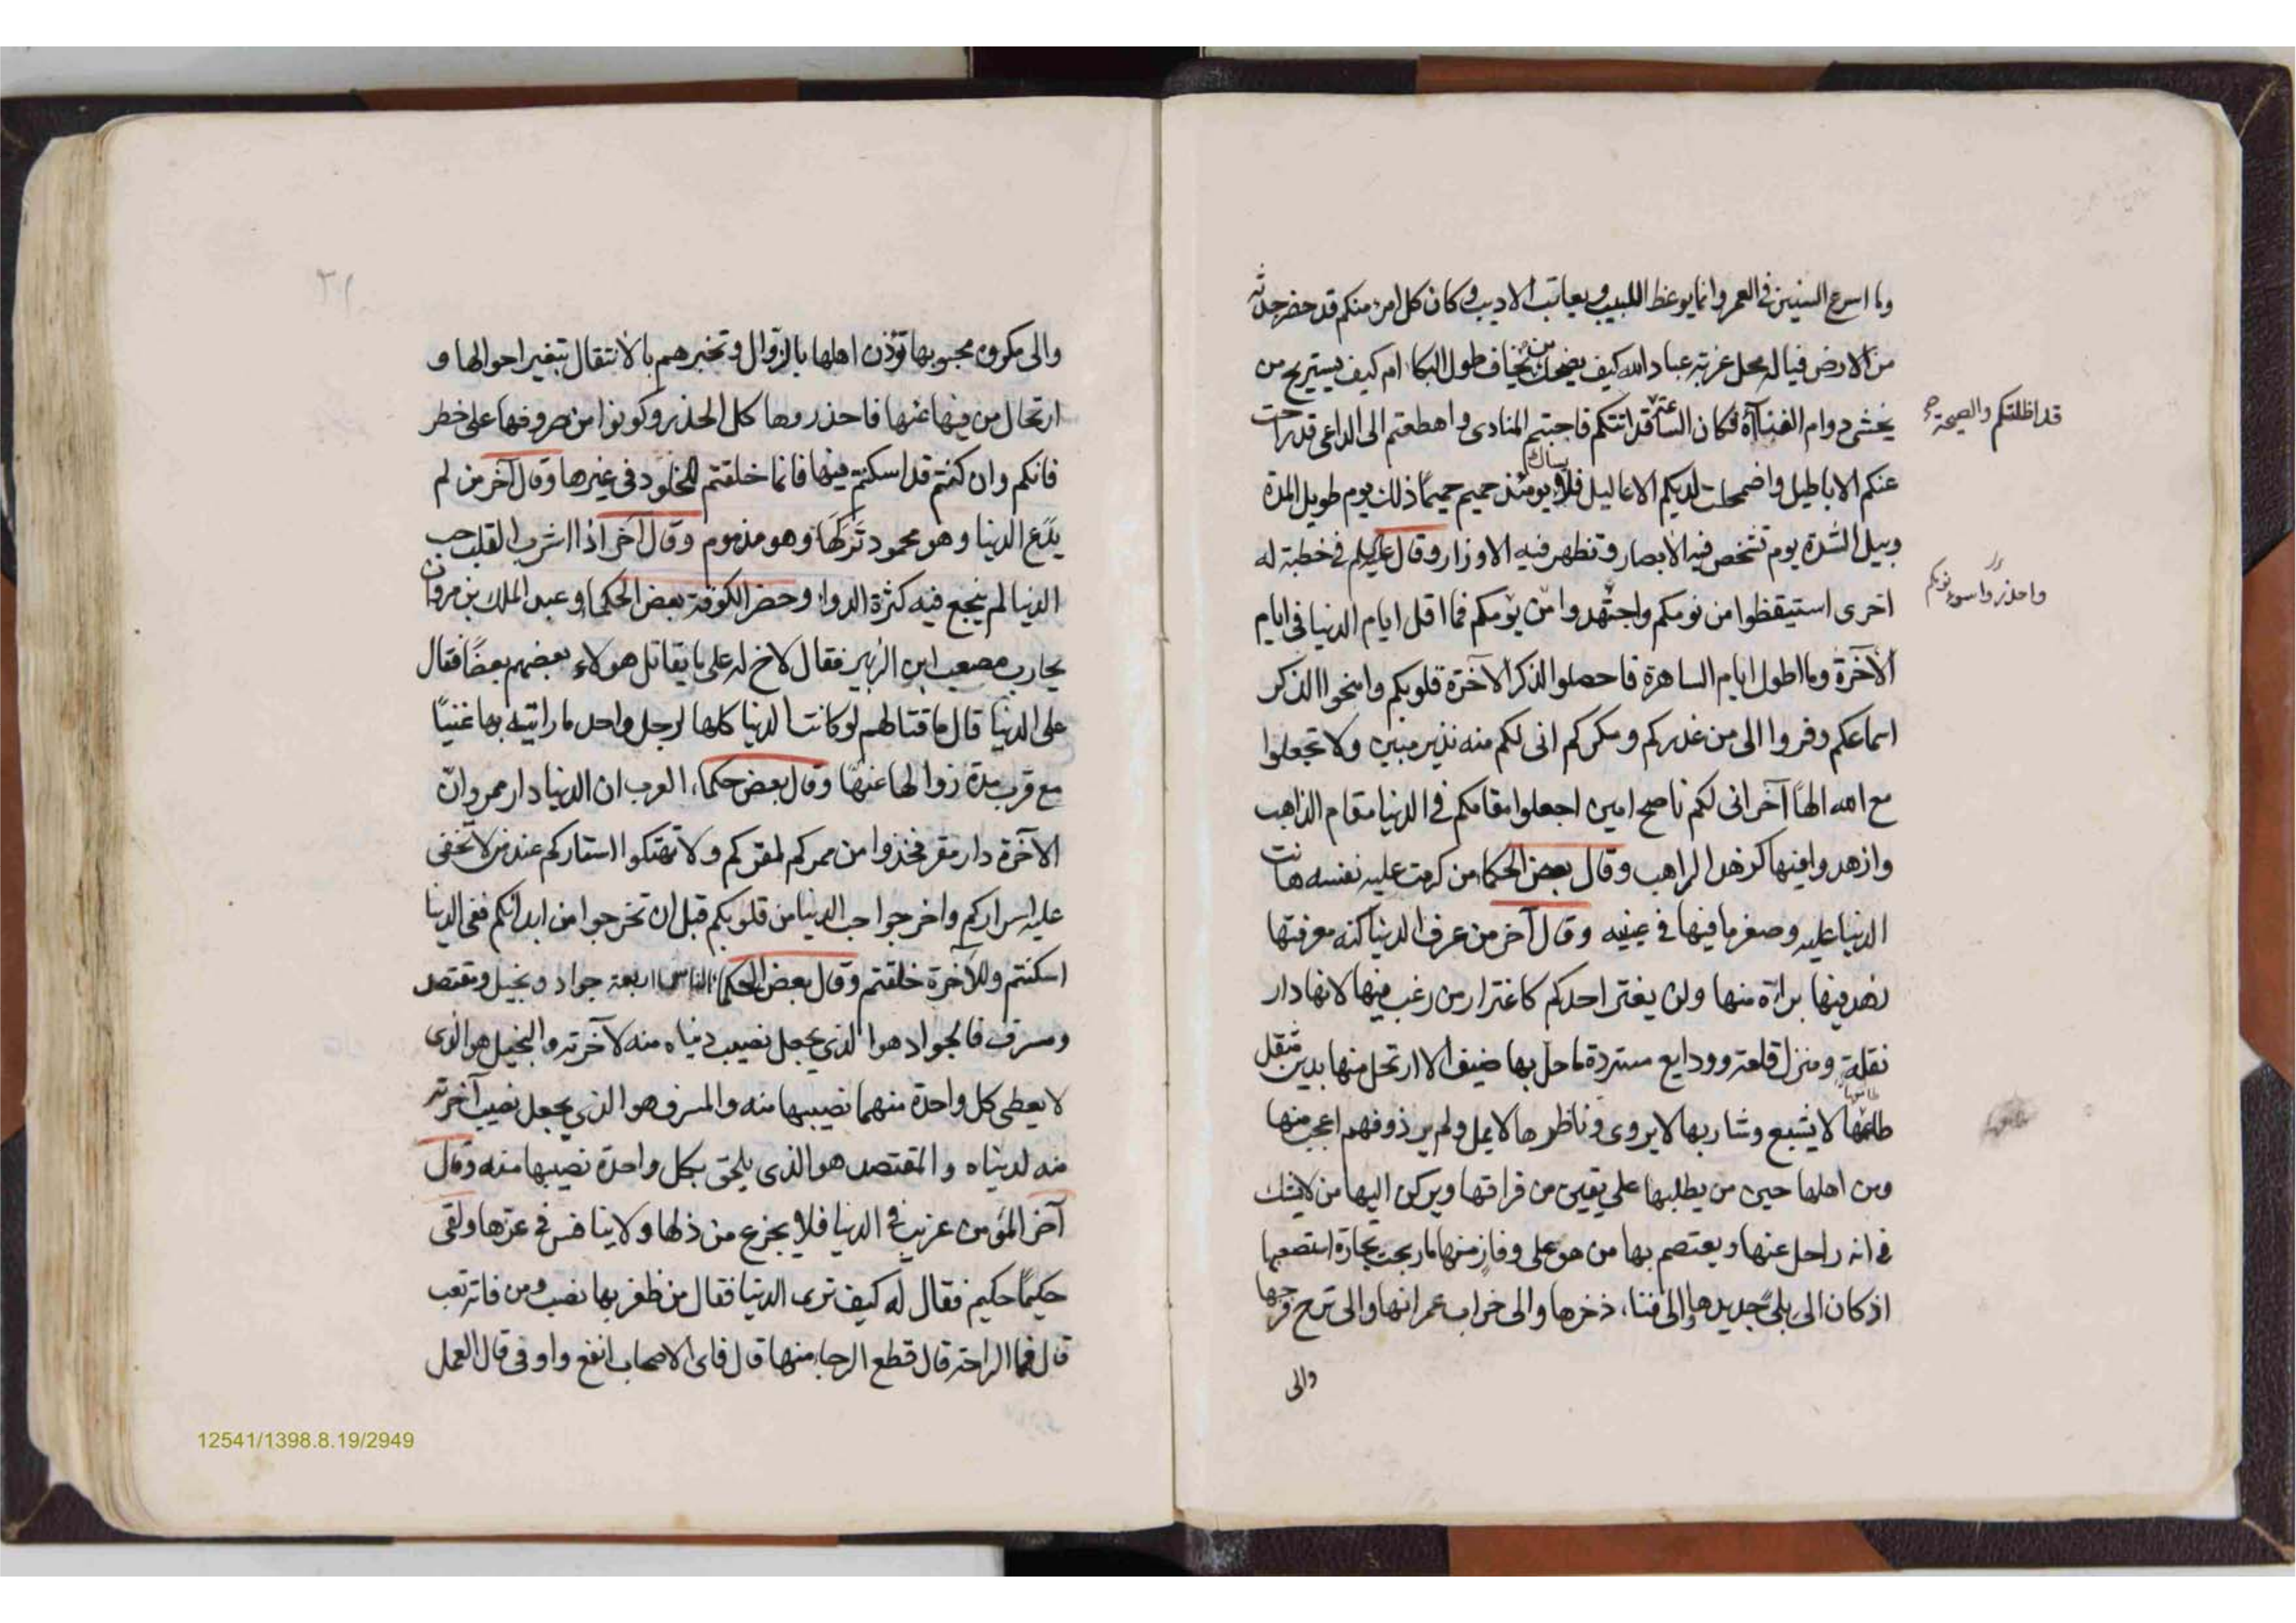 وما اسرع السنين فى العمر وانما يوعظ اللبيب ويعاتب الاديب وكان كل امرء منكم قد حضر جدثه
من الارض فيا له محل غربة عباد الله كيف يضحك من يخاف طول البكا ام كيف يستريح من
يخشى دوام الفناء فكان الساعة قد اتتكم فاجبتم المنادى واهطعتم الى الداعى قد زاحت
قد اظلتكم والصيحة
عنكم الاباطيل واضمحلت لديكم الاعاليل فلا يسال يومئذ حميم حميمًا ذلك يوم طويل المدة
وبيل الشدة يوم تشخص فيه الابصار وتظهر فيه الاوزار وقال عليه السلم فى خطبة له
اخرى استيقظوا من نومكم واجتهدوا من يومكم فما اقل ايام الدنيا فى ايام
واحذروا سوء نومكم
الآخرة وما اطول ايام الساهرة فاحصلوا لذكر الآخرة قلوبكم وامنحوا الذكر
اسماعكم وفروا الى من غدركم ومكركم انى لكم منه نذير مبين ولا تجعلوا
مع الله الهًا آخر انى لكم ناصح امين اجعلوا مقامكم فى الدنيا مقام الذاهب
وازهدوا فيها كزهد الراهب وقال بعض الحكماء من كرمت عليه نفسه هانت
الدنيا عليه وصغر ما فيها فى عينيه وقال آخر من عرف الدنيا كنه معرفتها
زهد فيها براءة منها ولن يغتر احدكم كاغترار من رغب فيها لانها دار
نقلة ومنزل قلعة وودايع مستردة ما حل بها ضيف الا ارتحل منها بدين مثقل
طاعمها لا يشبع وشاربها لا يروى وناظرها لا يمل ولم ير ذو فهم اعجب منها
ومن اهلها حين من يطلبها على يقين من فراقها ويركن اليها من لا يشك
فى انه راحل عنها ويعتصم بها من هو على وفاز منها ما ربحت تجارة استصعبها
اذ كان الى بلى جديدها والى فناء ذخرها والى خراب عمرانها والى ترح فرحها
والى
والى مكروه محبوبها تؤذن اهلها بالزوال وتخبرهم بالانتقال بتغير احوالها و
ارتحال من فيها عنها فاحذروها كل الحذر وكونوا من صروفها على خطر
فانكم وان كنتم قد اسكنتم فيها فانما خلقتم للخلود فى غيرها وقال آخر من لم
يدع الدنيا وهو محمود تركها وهو مذموم وقال آخر اذا اشرب القلب حب
الدنيا لم ينجع فيه كثرة الدواء وحضر الكوفة بعض الحكماء وعبد الملك بن مروان
يحارب مصعب ابن الزبير فقال لاخ له على ما يقاتل هولاء بعضهم بعضًا فقال
على الدنيا قال ما قتالهم لو كانت الدنيا كلها لرجل واحد ما رايته بها غنيًا
مع قرب مدة زوالها عنها وقال بعض حكماء العرب ان الدنيا دار ممر وان
الآخرة دار مقر فخذوا من ممركم لمقركم ولا تهتكوا استاركم عند من لا تخفى
عليه اسراركم واخرجوا حب الدنيا من قلوبكم قبل ان تخرجوا من ابدانكم ففى الدنيا
اسكنتم وللآخرة خلقتم وقال بعض الحكماء الناس اربعة جواد وبخيل ومقتصد
ومسرف فالجواد هو الذى يجعل نصيب دنياه منه لآخرته والبخيل هو الذى
لا يعطى كل واحدة منهما نصيبها منه والمسرف هو الذى يجعل نصيب آخرته
منه لدنياه والمقتصد هو الذى يلحق بكل واحدة نصيبها منه وقال
آخر المؤمن غريب فى الدنيا فلا يجزع من ذلها ولا ينافس فى عزها ولقى
حكيمًا حكيم فقال له كيف ترى الدنيا فقال من ظفر بها نصب ومن فاتته تعب
قال فما الراحة قال قطع الرجاء منها قال فاى الاصحاب انفع واوفى قال العمل
12541/1398.8.19/2949